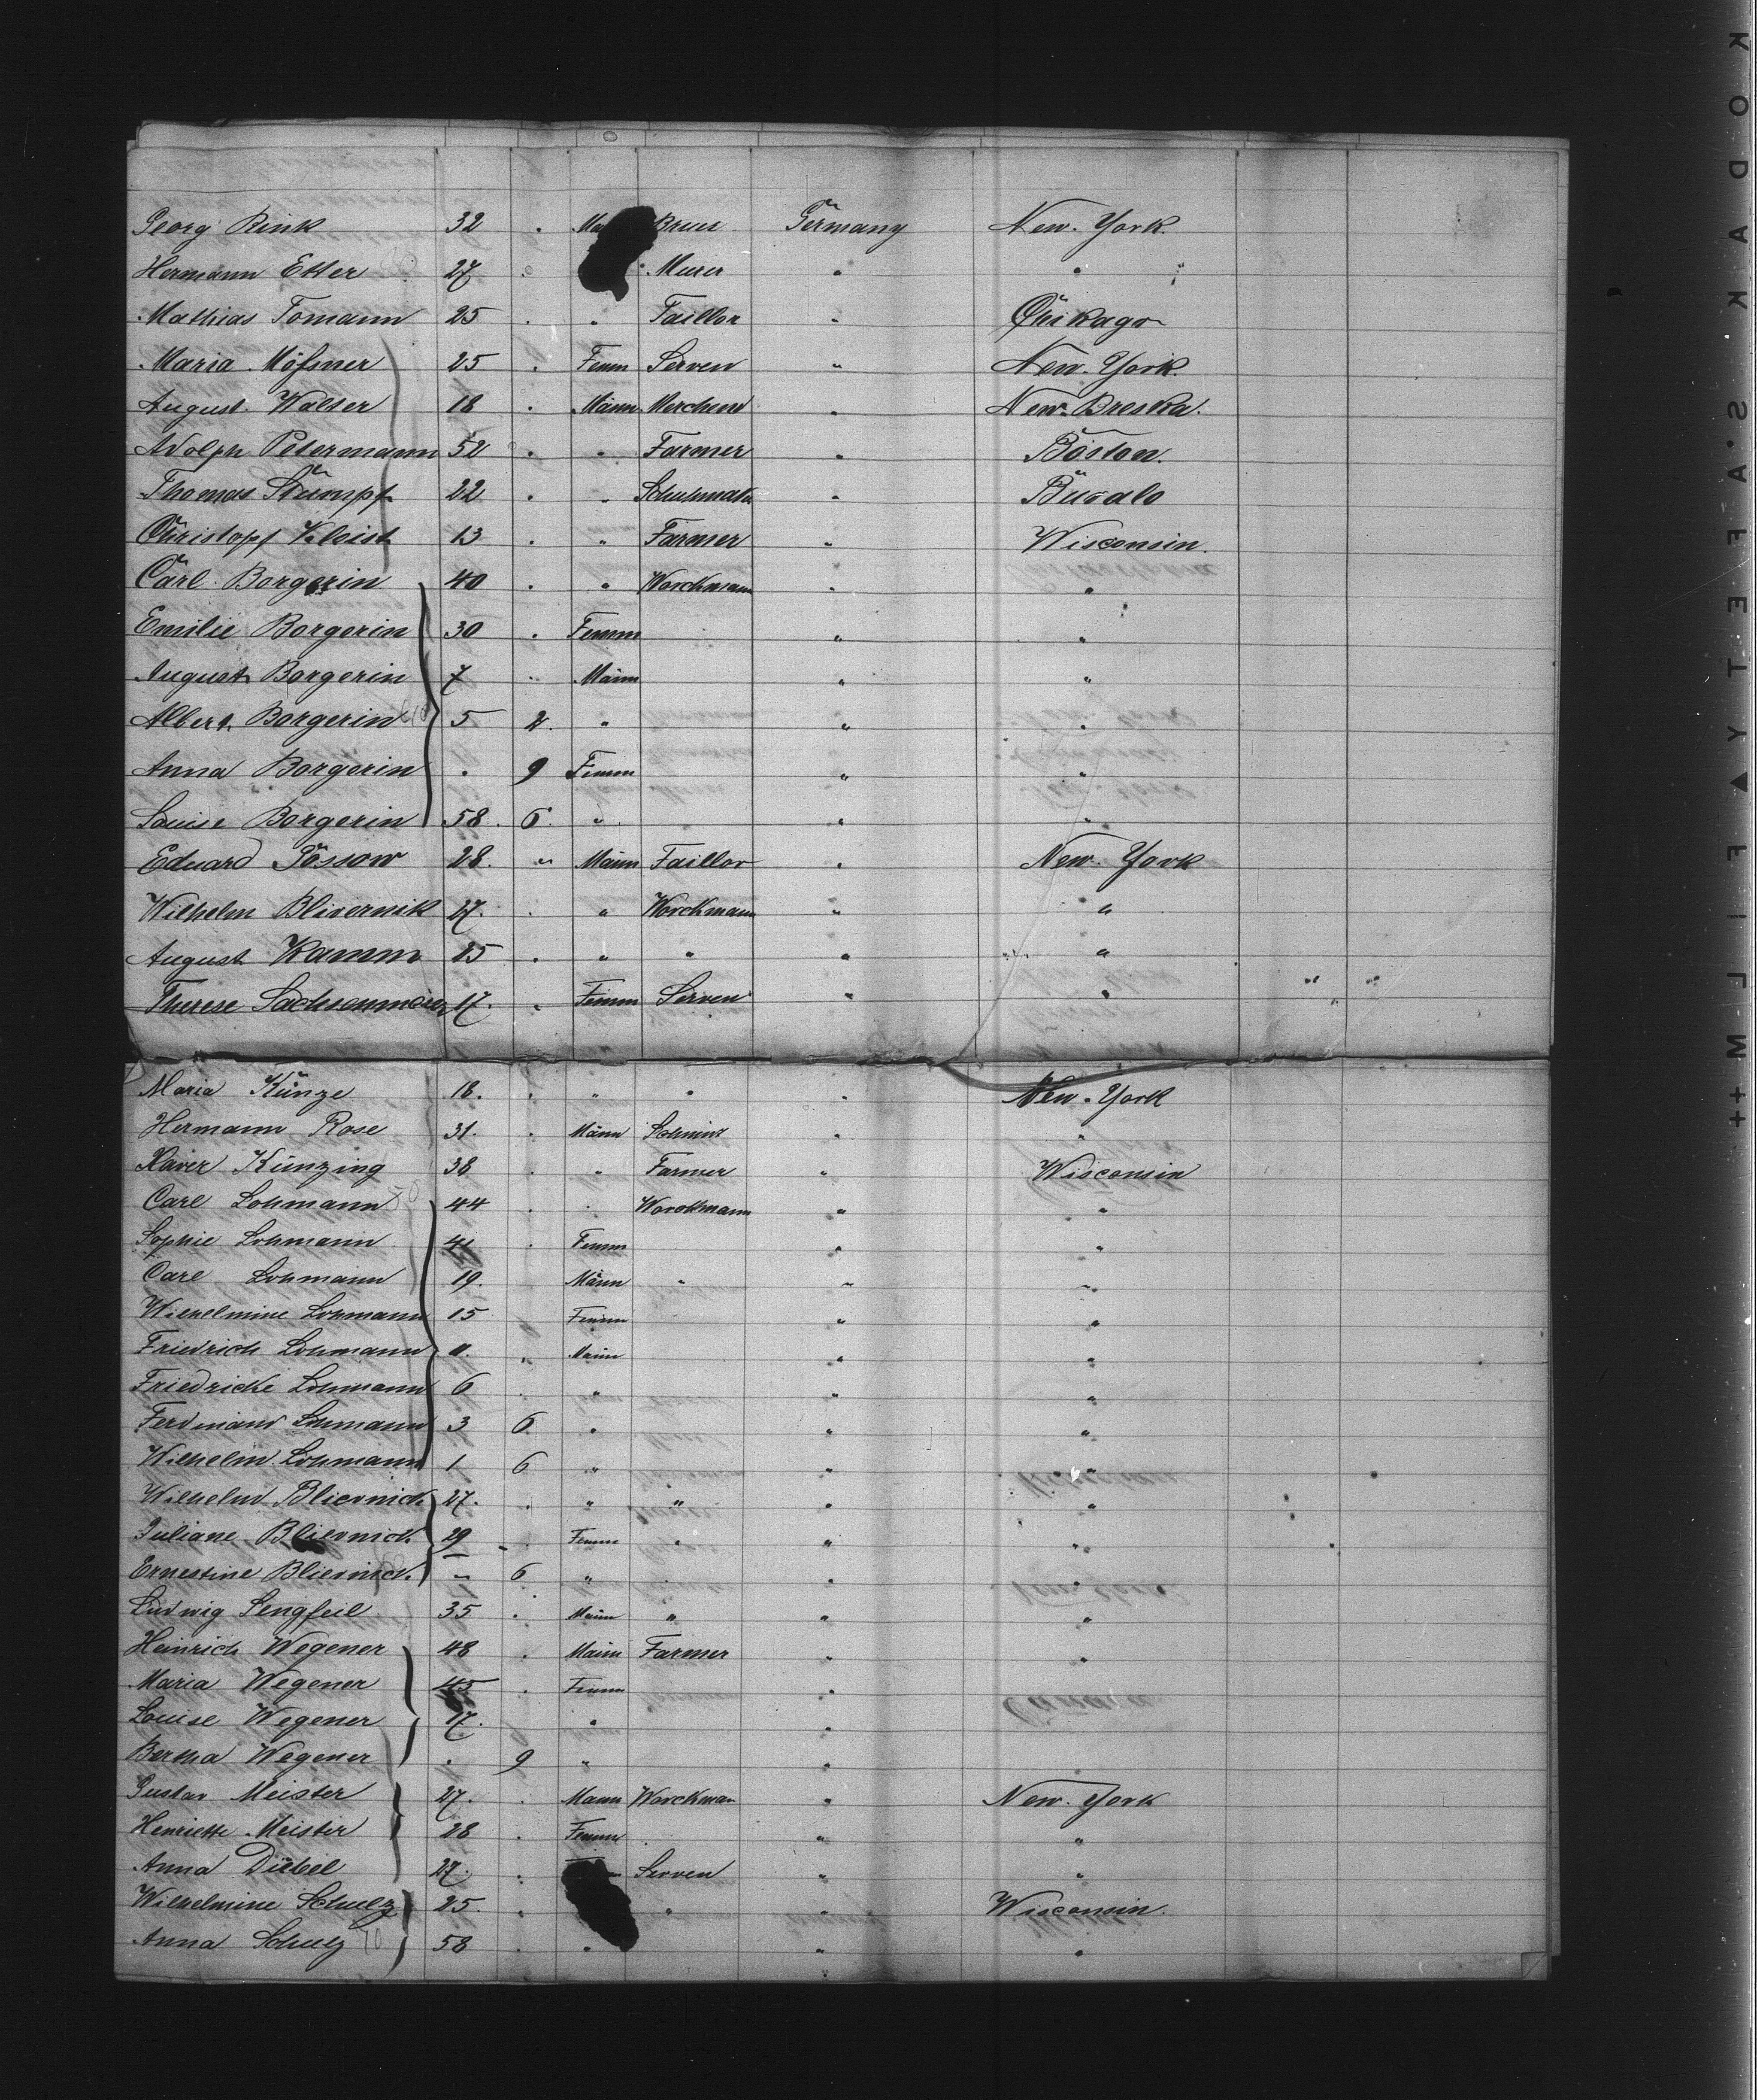 Georg Rink 32 " Brucs Germany New-York.
Hermann Etter 27 " Murer " "
Mathias Tomann 25 " " Taillor " Chikago
Maria Mößner 25 " Femm Serven " New-York.
August Walter 18 " Männ Merchend " New-Breska.
Adolph Petermann 52 " " Farmer " Boston.
Thomas Stumpf 22 " " Schuhmach " Büvalo
Christopf Kleist 13 " " Farmer " Wisconsin.
Carl Borgerin 40 " " Worckmann " "
Emilie Borgerin 30 " Femm " "
August Borgerin 7 " Männ " "
Albert Borgerin 5 2. " " "
Anna Borgerin " 9 Femm " "
Louise Borgerin 58. 6. " " "
Eduard Possow 28. " Männ Taillor " New-York
Wilhelm Blivernik 27. " " Worckmann " "
August Kamm 25 " " " " "
Therese Sachsenmaier 17. " Femm Serven " "
Maria Künze 18. " " " " New-York
Hermann Rose 31. " Männ Schmit " "
Xaver Künzing 38 " " Farmer " Wisconsin
Carl Lohmann 44 " " Worckmann " "
Sophie Lohmann 41 " Femm " "
Carl Lohmann 19. Männ " " "
Wilhelmine Lohmann 15 Femm " "
Friedrich Lohmann 11. " Männ " "
Friedricke Lohmann 6 " " " "
Ferdinand Lohmann 3 6 " " "
Wilhelm Lohmann 1 6 " " "
Wilhelm Blievnich 27. " " " " "
Juliane Blievnich 29 " Femm " " "
Ernestine Blievnich " 6 " " "
Ludwig Sengfeil 35 " Männ " " "
Heinrich Wegener 48 " Männ Farmer " "
Maria Wegener 45 " Femm "
Louise Wegener 17. " "
Bertha Wegener " 9 " "
Gustav Meister 27. " Mann Worckman " New-York
Henriette Meister 28 " Femm " "
Anna Dübel 27. " Serven " "
Wilhelmine Schulz 25. " " " Wisconsin.
Anna Schulz 58 " " " "
KODAK S'AFETY FILM